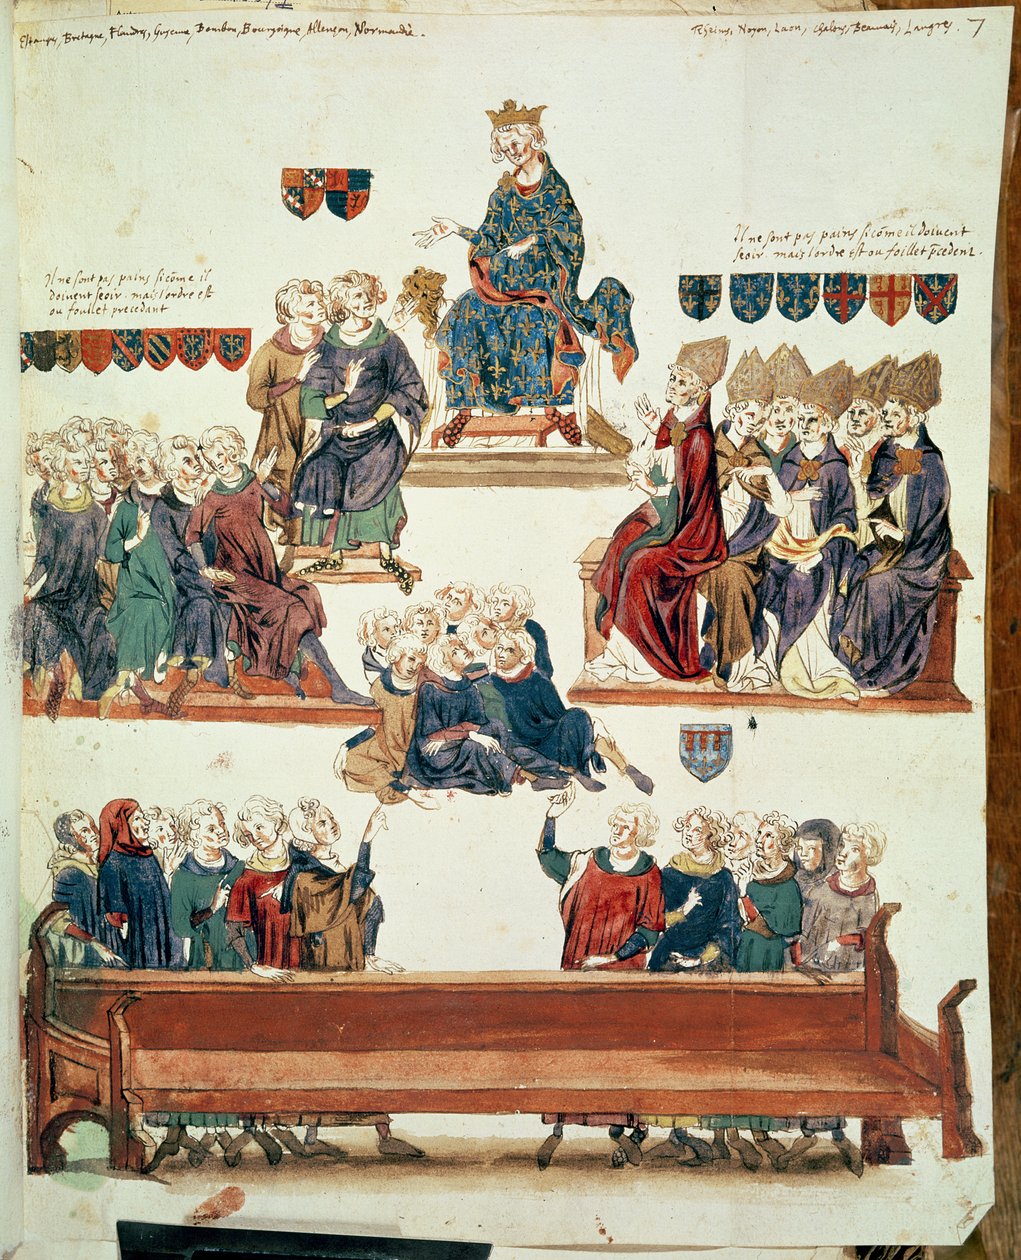 Estampes, Bretagne, Flandres, Guyenne, Bourbon, Bourgoigne, Allenson, Normandie.
Rheins, Noyon, Laon, Chalons, Beauvais, Langres. 7
Il ne sont pas pairs sicõme il doiuent
seoir. mais lordre est ou foillet p̃cedent.
Il ne sont pas pairs sicõme il
doiuent seoir. mais lordre est
ou foillet precedant